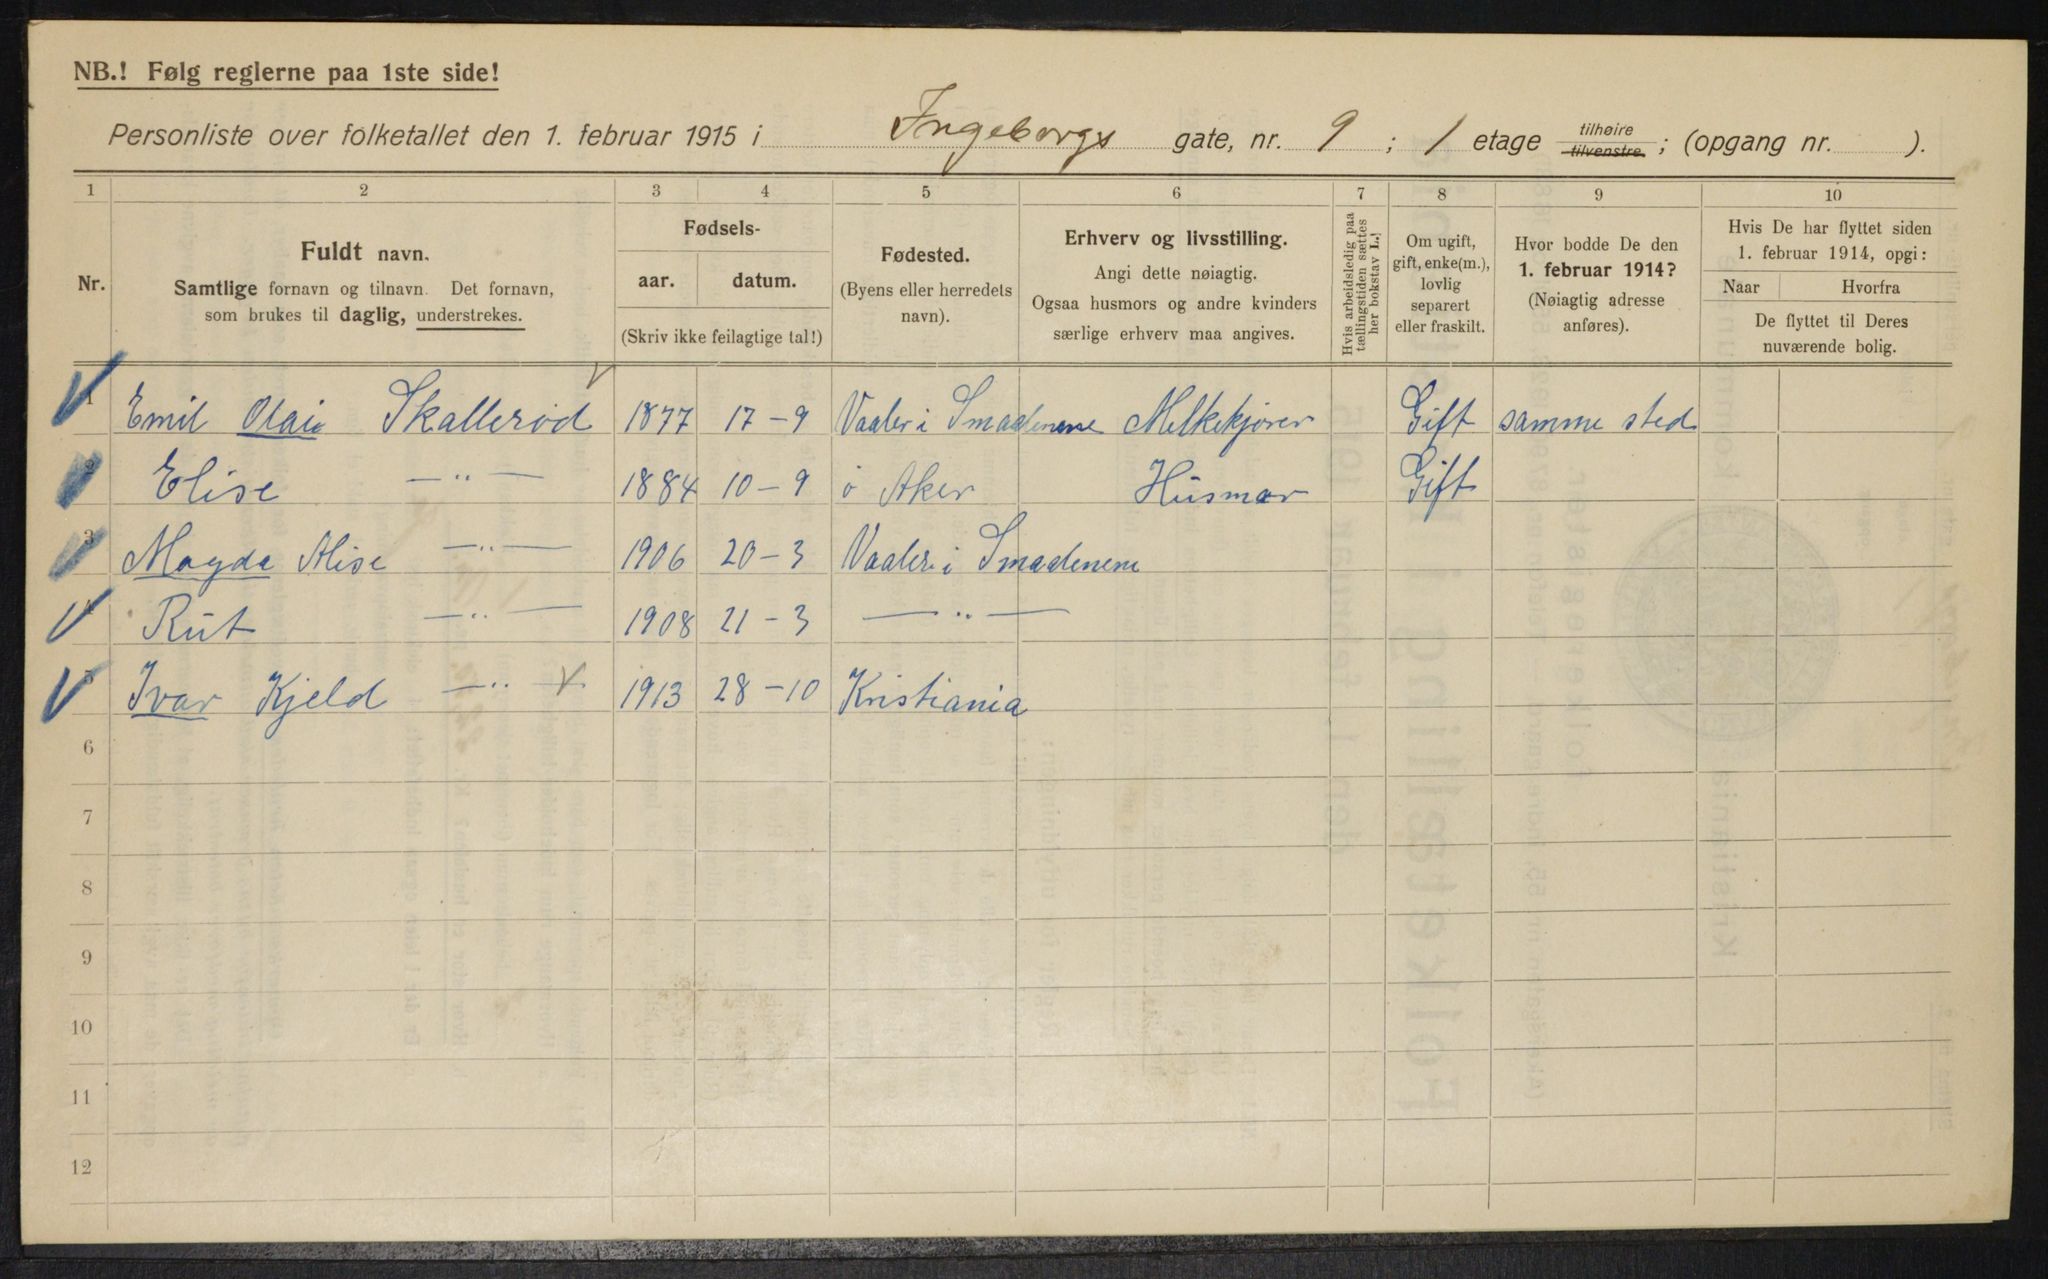 NB.! Følg reglerne paa 1ste side!
Personliste over folketallet den 1. februar 1915 i Ingeborgs gate, nr. 9 ; 1 etage tilhøire tilvenstre. ; (opgang nr. ).
1 2 3 4 5 6 7 8 9 10
Nr.
Fuldt navn.
Samtlige fornavn og tilnavn. Det fornavn,
som brukes til daglig, understrekes.
Fødsels-
aar. datum.
(Skriv ikke feilagtige tal!)
Fødested.
(Byens eller herredets
navn).
Erhverv og livsstilling.
Angi dette nøiagtig.
Ogsaa husmors og andre kvinders
særlige erhverv maa angives.
Hvis arbeidsledig paa
tællingstiden sættes
her bokstav L.!
Om ugift,
gift, enke(m.),
lovlig
separert
eller fraskilt.
Hvor bodde De den
1. februar 1914?
(Nøiagtig adresse
anføres).
Hvis De har flyttet siden
1. februar 1914, opgi:
Naar Hvorfra
De flyttet til Deres
nuværende bolig.
1 Emil Olai Skallerød 1877 17-9 Vaaler i Smaalenene Melkekjører Gift samme sted
2 Elise —„— 1884 10-9 Ø Aker Husmor Gift
3 Magda Alise —„— 1906 20-3 Vaaler i Smaalenene
4 Rut —„— 1908 21-3 —„—
5 Ivar Kjeld —„— 1913 28-10 Kristiania
6
7
8
9
10
11
12